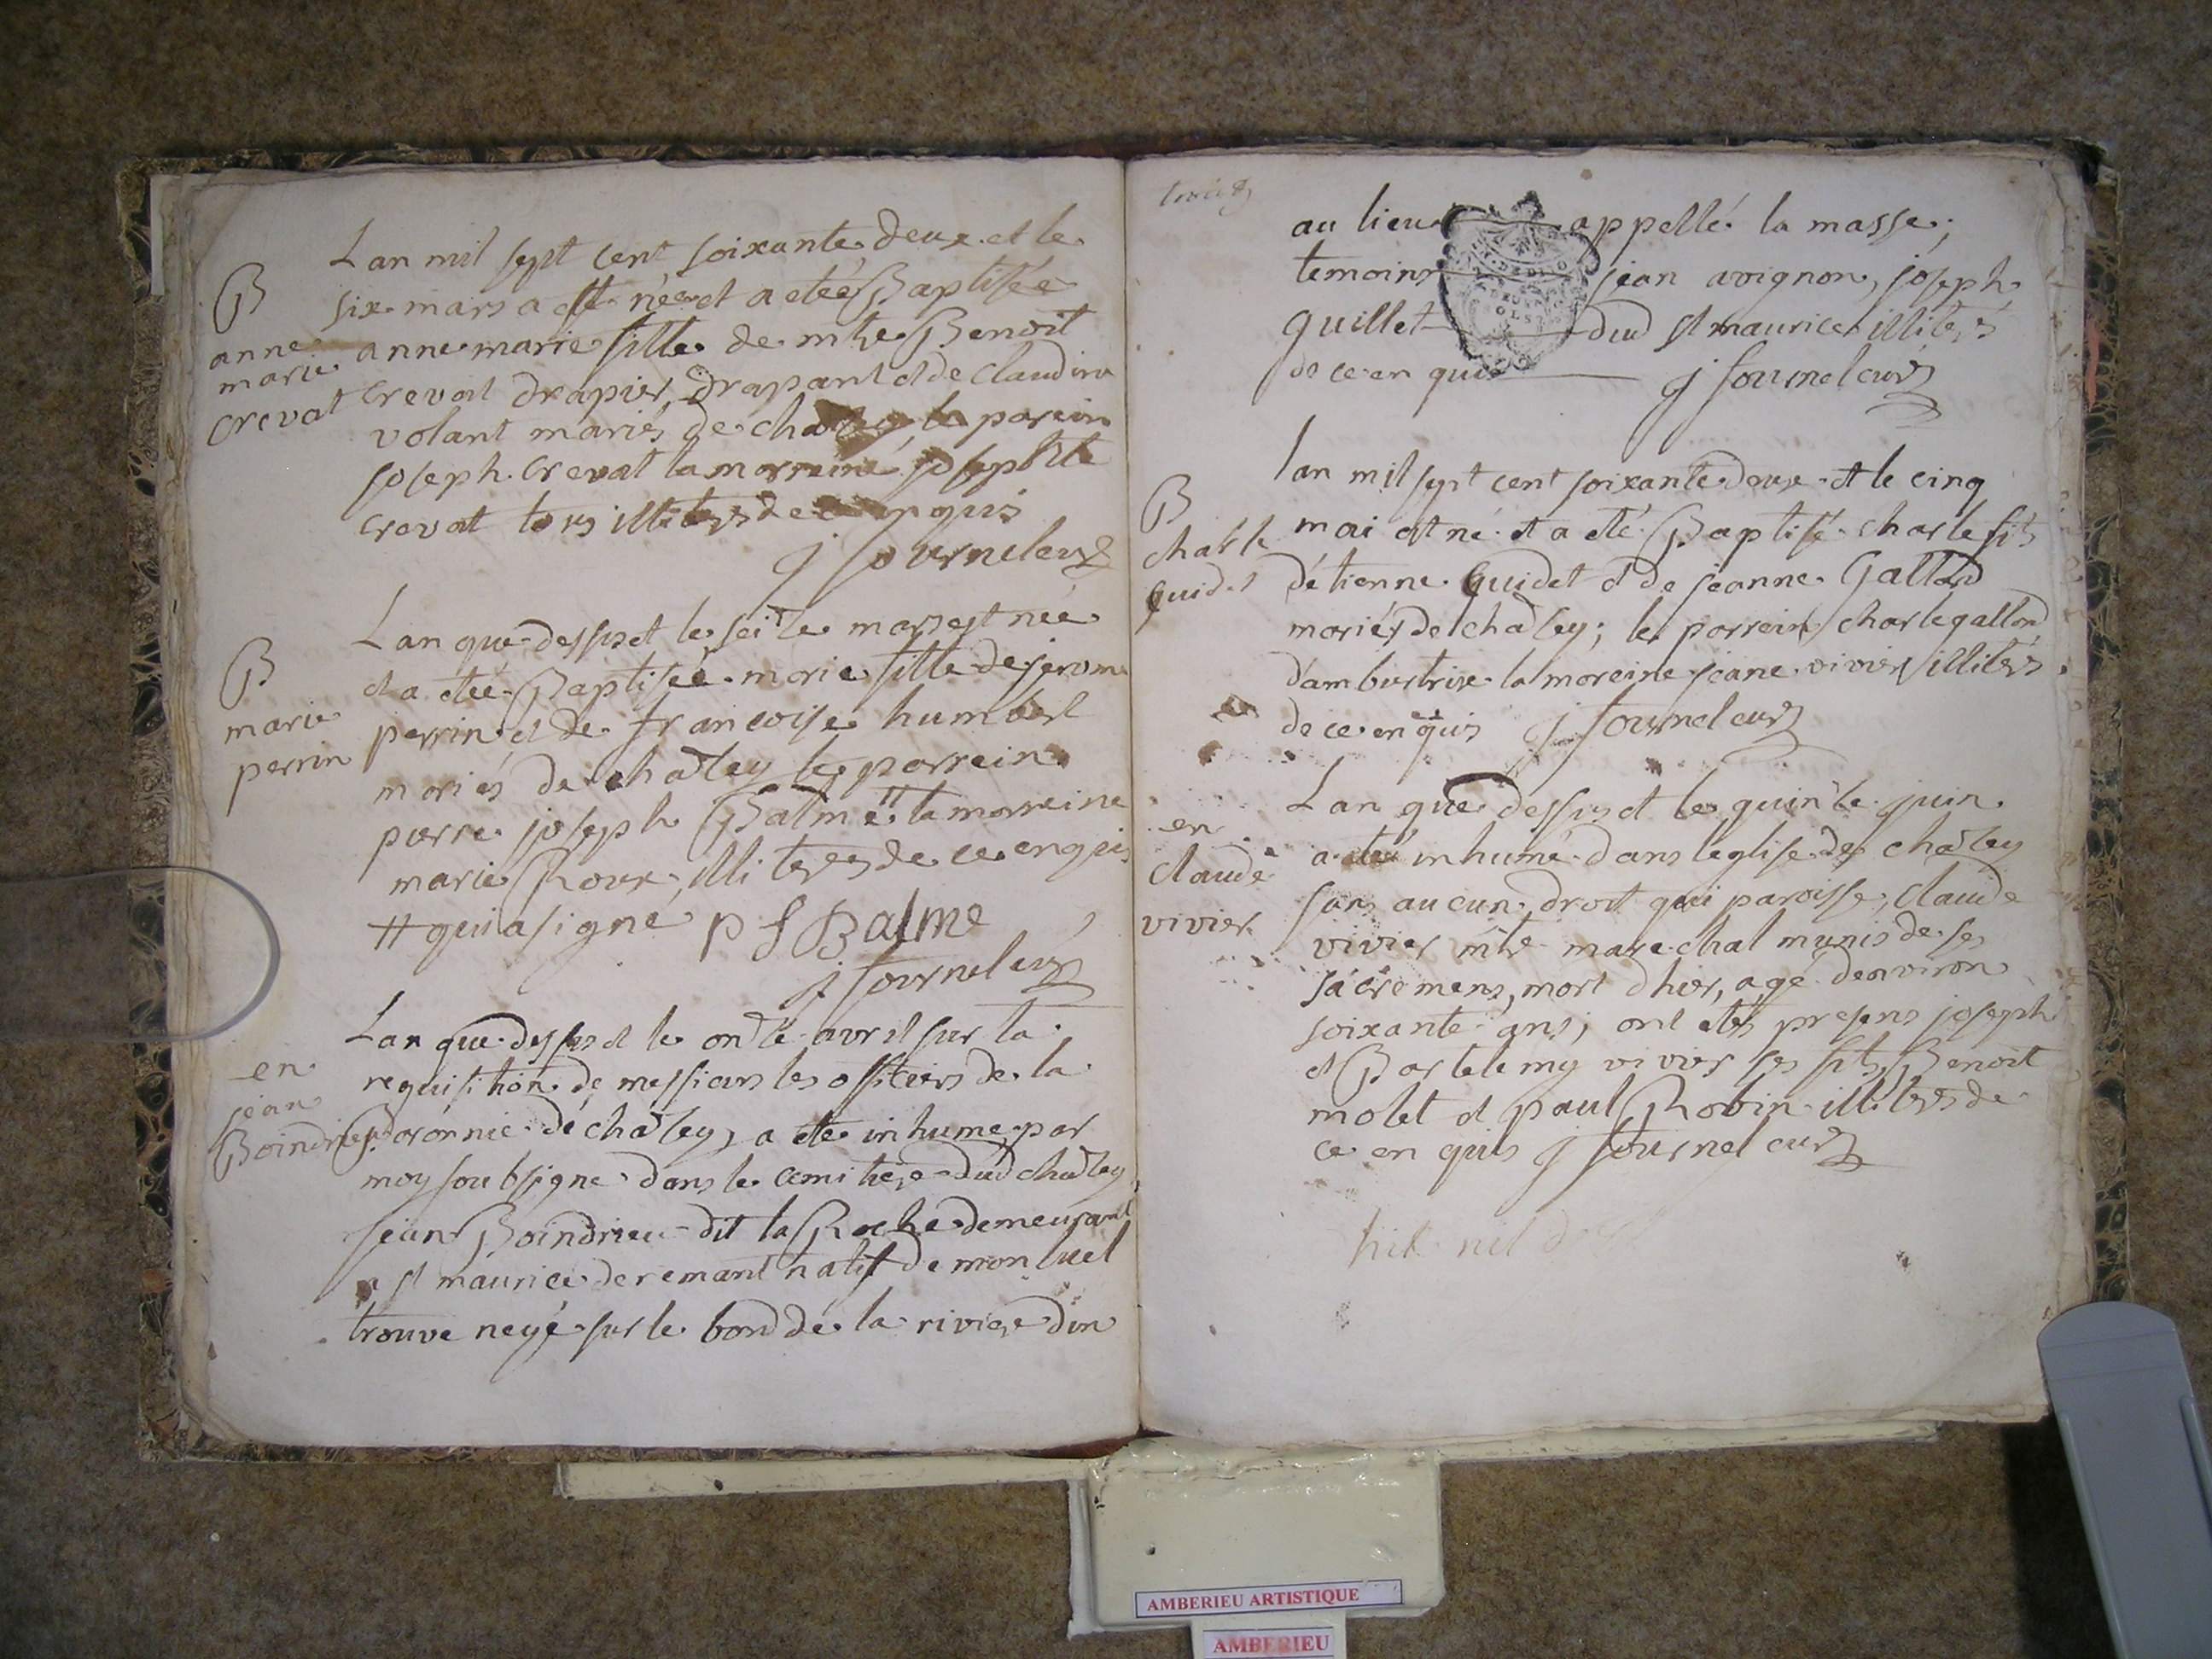 Lan mil sept cent soixante deux et le
six mars a est née et a etée Baptisée
anne marie fille de mtre Benoit
Crevat drapier drapant et de Claudine
volant mariés de chaley le parein
joseph Crevat la marreine josephte
crevat tous illiteres de ce enquis
j fourneleur
B
anne
marie
Crevat
Lan que dessus et le seize mars est née
et a etée Baptisée marie fille de jerome
perrin et de francoise humbert
mariés de chazley le parrein
pierre joseph Balme # la marreine
marie Roux, illiteres de ce enquis
# qui a signé p j Balme
j fourneleur
B
marie
perrin
Lan que dessus et le onze avril sur la
requisition de messieurs les officiers de la
Baronnie de chazley, a ete inhume par
moy soubsigne dans le cemitiere dud chazley
jean Boindrieu dit la Roche demeurant
a st maurice de remant natif de monluel
trouve neyé sur le bord de la riviere din
en
jean
Boindrieu
au lieu appellé la masse;
temoins jean avignon, joseph
guillet dud st maurice illiterés
de ce enquis j fourneleur
lan mil sept cent soixante deux et le cinq
mai est né et a eté Baptisé charle fils
détienne Guidet et de jeanne Galland
mariés de chazley; le parrein charle galland
dambutrix la moreine jeane vivier illiterés
de ce enquis j fourneleur
B
charle
Guidet
Lan que dessus et le quinze juin
a eté inhumé dans leglise de chazley
sans aucun droit qui paroisse, claude
vivier mtre marechal munis de ses
sacremens, mort dhier, agé denviron
soixante ans; ont etés presens joseph
et Bartelemy vivier ses fils, Benoit
molet et paul Robin illiteres de
ce enquis j fourneleur
en
claude
vivier
AMBERIEU ARTISTIQUE
AMBERIEU